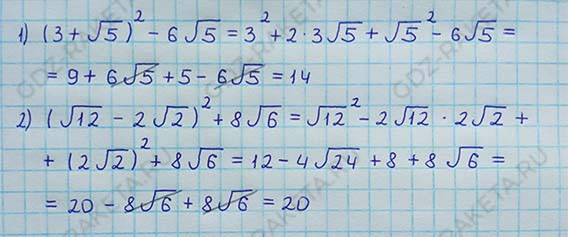 1) (3 + √5)² - 6√5 = 3² + 2 · 3√5 + √5² - 6√5 =
= 9 + 6√5 + 5 - 6√5 = 14
2) (√12 - 2√2)² + 8√6 = √12² - 2√12 · 2√2 +
+ (2√2)² + 8√6 = 12 - 4√24 + 8 + 8√6 =
= 20 - 8√6 + 8√6 = 20